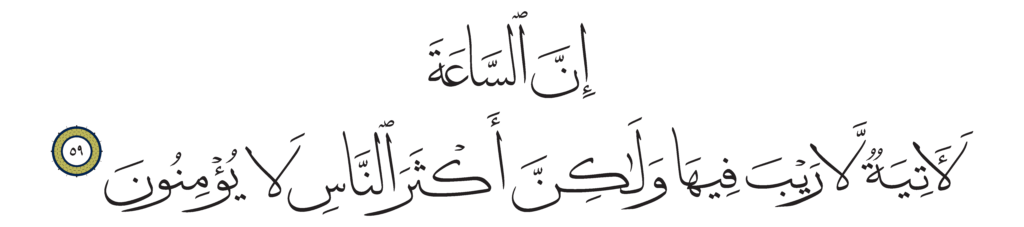 إِنَّ ٱلسَّاعَةَ
لَأَتِيَةٌ لَّا رَيْبَ فِيهَا وَلَٰكِنَّ أَكْثَرَ ٱلنَّاسِ لَا يُؤْمِنُونَ ٥٩